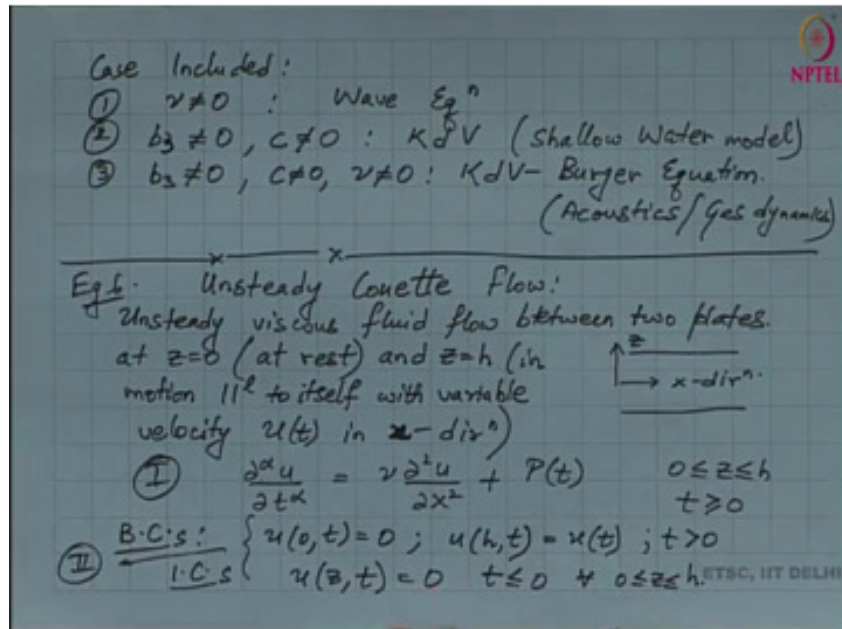 NPTEL
Case Included:
① ν≠0 : Wave Eqⁿ
② b₃ ≠0, c≠0 : KdV (Shallow Water model)
③ b₃ ≠0, c≠0, ν≠0 : KdV- Burger Equation.
(Acoustics/Gas dynamics)
Eg 6. Unsteady Couette Flow:
Unsteady viscous fluid flow between two plates.
at z=0 (at rest) and z=h (in
motion 11ˡ to itself with variable
velocity u(t) in x-dirⁿ)
z
x-dirⁿ.
Ⓘ ∂ᵅu/∂tᵅ = ν ∂²u/∂x² + P(t) 0≤z≤h
t≥0
B.C.s: { u(0,t)=0 ; u(h,t)=u(t) ; t>0
Ⅱ I.C.s { u(z,t)=0 t≤0 ∀ 0≤z≤h.
ETSC, IIT DELHI